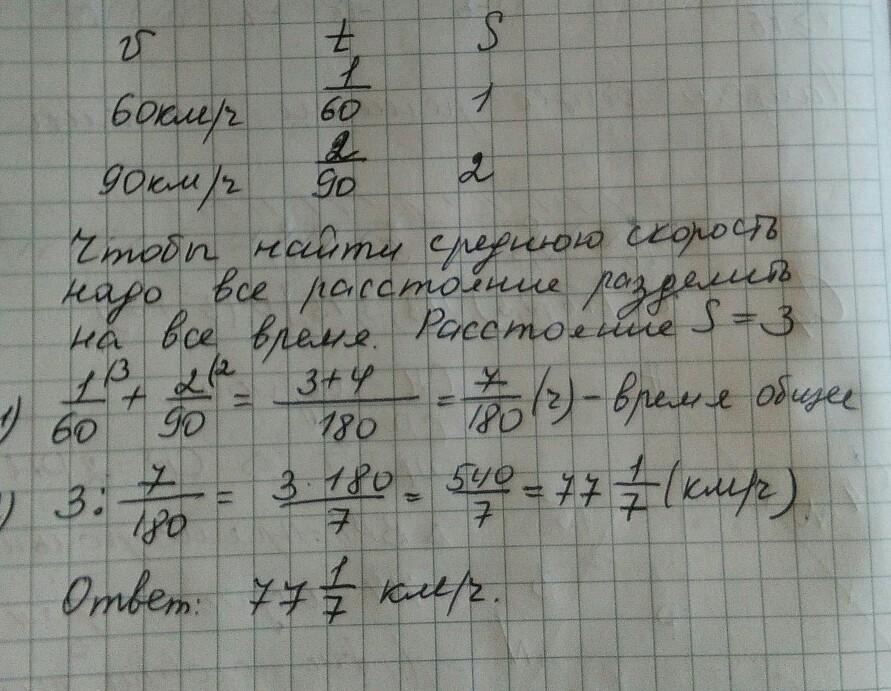 v t S
60км/ч 1/60 1
90км/ч 2/90 2
Чтобы найти среднюю скорость
надо все расстояние разделить
на все время. Расстояние S = 3
1) 1/60 (3 + 2/90 (2 = 3+4/180 = 7/180 (ч) - время общее
) 3 : 7/180 = 3·180/7 = 540/7 = 77 1/7 (км/ч)
Ответ: 77 1/7 км/ч.